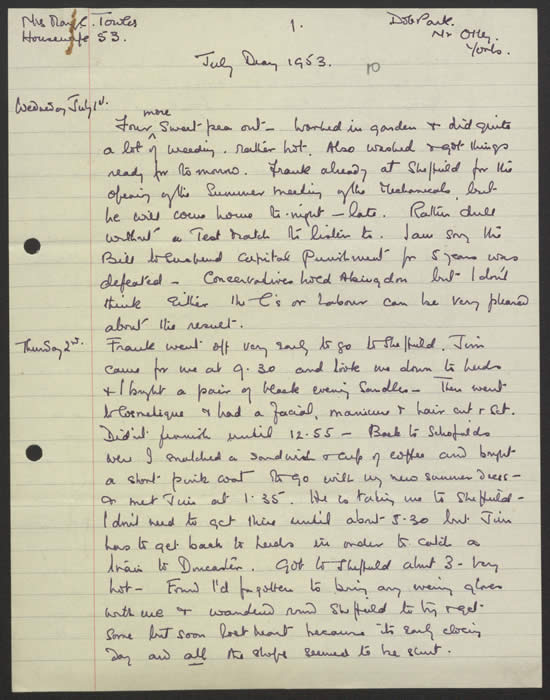 Mrs Mary C. Towler
Housewife 53.
1.
Dob Park.
Nr Otley.
Yorks.
July Diary 1953.
10
Wednesday July 1st.
more
Four ^ Sweet pea out – worked in garden & did quite
a lot of weeding. rather hot. Also washed & got things
ready for to-morrow. Frank already at Sheffield for the
opening of the Summer meeting of the Mechanicals, but
he will come home to-night – late. Rather dull
without a Test Match to listen to. I am sorry the
Bill to suspend Capital Punishment for 5 years was
defeated – Conservatives hold Abingdon but I don't
think either the C's or Labour can be very pleased
about the result.
Thursday 2nd.
Frank went off very early to go to Sheffield. Jim
came for me at 9.30 and took me down to Leeds
& I bought a pair of black evening Sandles – Then went
to Cosmetique & had a facial, manicure & hair cut & set.
Didn't finish until 12.55 – Back to Schofields
were I snatched a sandwich & cup of coffee and bought
a short pink coat to go with my new summer dress –
& met Jim at 1.35. He is taking me to Sheffield –
I don't need to get there until about 5.30 but Jim
has to get back to Leeds in order to catch a
train to Doncaster. Got to Sheffield about 3 – very
hot – Found I'd forgotten to bring any evening gloves
with me & wandered round Sheffield to try & get
some but soon lost heart because its early closing
day and all the shops seemed to be shut.